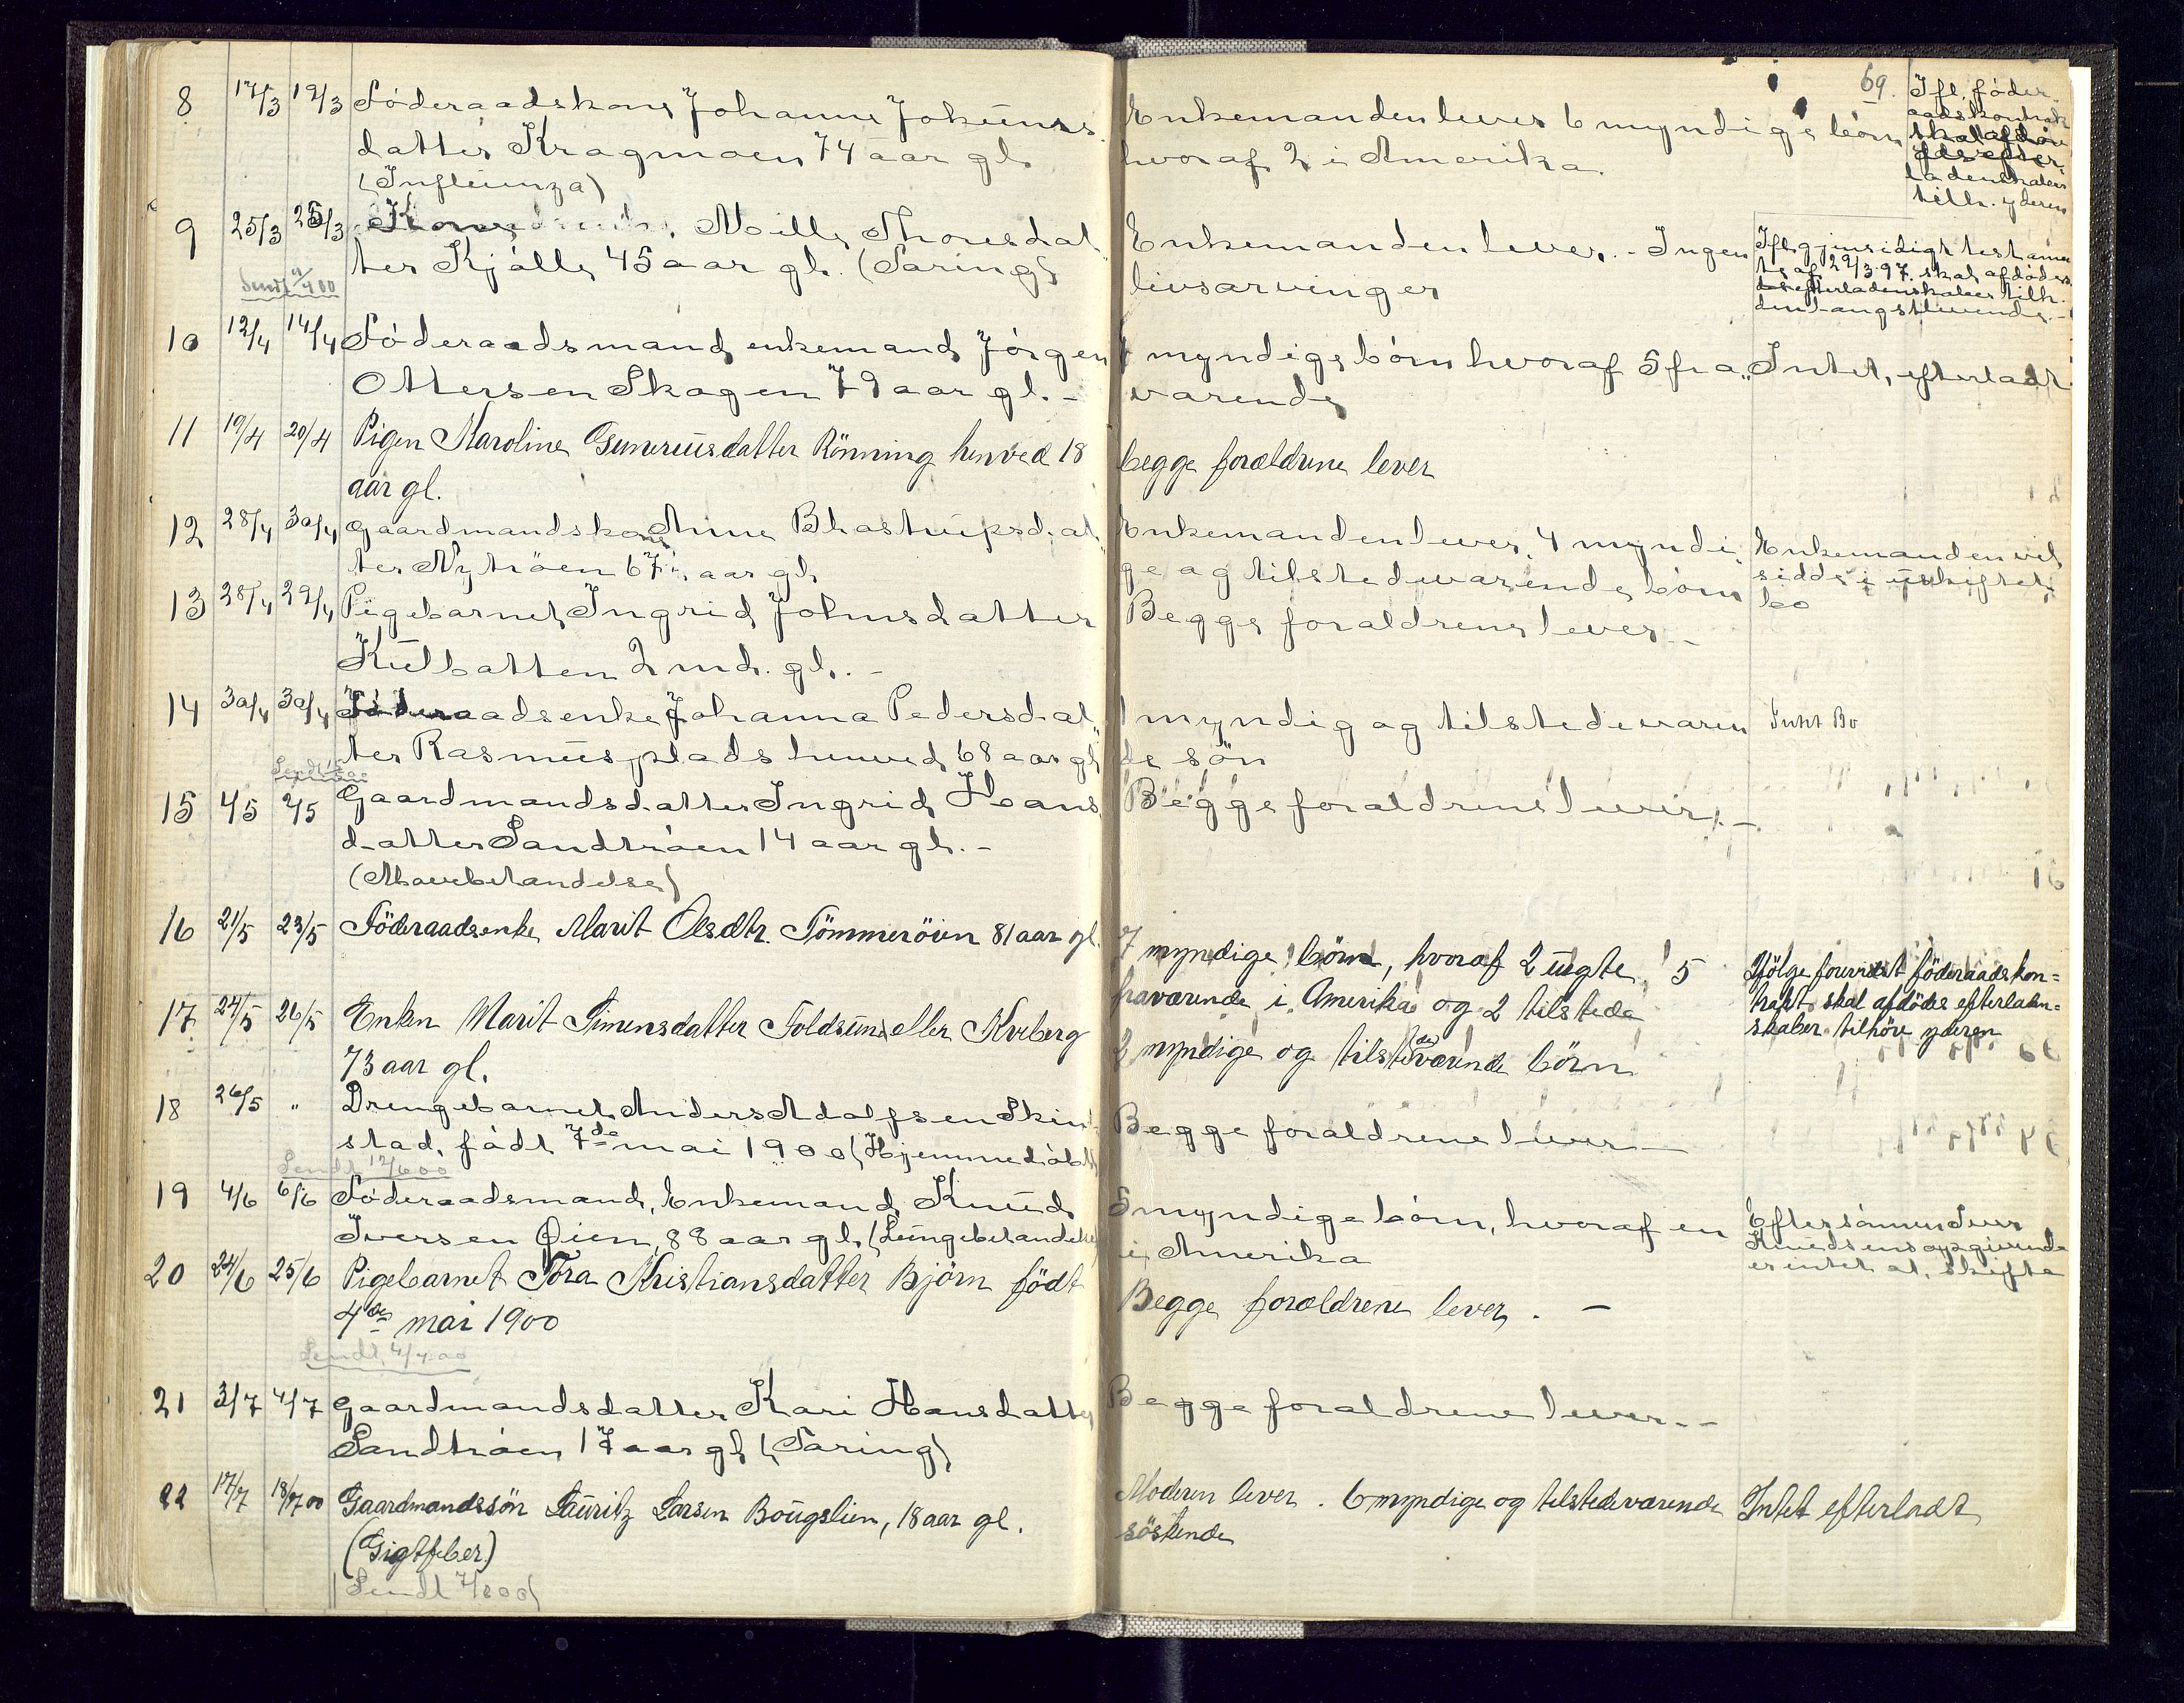 69.
8 17/3 19/3 Föderaadskone Johanne Jokums
datter Kragmoen 74 aar gl.
(Influenza)
Enkemanden lever 6 myndige börn
hvoraf 2 i Amerika
Ifl. föder
aadskontrakt
skal afdö
des efter
ladenskaber
tilh. yderen
9 25/3 25/3 Kone Mille Thoresdat
ter Kjölle 45 aar gl. (Tæring)
Sendt 11/4 00
Enkemanden lever. - Ingen
livsarvinger
Ifl. gjensidigt testamen
te af 29/3 97. skal afdödes
efterladenskaber tilh.
den længstlevende. -
10 12/4 14/4 Föderaadsmand, enkemand Jörgen
Ottersen Skogen 79 aar gl. -
myndige börn hvoraf 5 fra„
værende
Intet, efterladt
11 19/4 20/4 Pigen Karoline Guneriusdatter Rönning henved 18
aar gl.
begge forældrene lever
12 28/4 30/4 Gaardmandskone Anne Bhastrupsdat„
ter Nytröen 67 aar gl.
Enkemanden lever. 4 myndi
ge og tilstedeværende börn
Enkemanden vil
sidde i uskiftet
bo
13 28/4 29/4 Pigebarnet Ingrid Johnsdatter
Kulbatten 2 md. gl. -
Begge forældrene lever. -
14 30/4 30/4 Föderaadsenke Johanna Pedersdat„
ter Rasmusplads henved 68 aar gl.
1 myndig og tilstedeværen
de sön
Intet Bo
15 4/5 4/5 Gaardmandsdatter Ingrid Hans
datter Sandtröen 14 aar gl. -
(Mavebetændelse)
Begge forældrene lever. -
16 21/5 23/5 Föderaadsenke Marit Olsdtr. Tömmeröien 81 aar gl.
7 myndige börn, hvoraf 2 ugte, 5
fraværende i Amerika og 2 tilstede
Ifölge föderaadskon=
trakt skal afdödes efterladen=
skaber tilhöre yderen
17 24/5 26/5 Enken Marit Simensdatter Toldsund eller Kveberg
73 aar gl.
2 myndige og tilstedeværende börn
18 26/5 „ Drengebarnet Anders Adolfsen Skin
stad, födt 7de mai 1900 (Hjemmedöbt)
Sendt 12/6 00
Begge forældrene lever -
19 4/6 6/6 Föderaadsmand, Enkemand Knud
Iversen Øien, 88 aar gl. (Lungebetændelse)
5 myndige börn, hvoraf en
i Amerika
Efter sönnen Iver
Knudsens opgivende
er intet at skifte
20 24/6 25/6 Pigebarnet Tora Kristiansdatter Björn födt
4de mai 1900
Sendt 4/7 00
Begge forældrene lever. -
21 3/7 4/7 Gaardmandsdatter Kari Hansdatter
Sandtröen 17 aar gl. (Tæring)
Begge forældrene lever. -
22 17/7 18/7 00 Gaardmandssön Lauritz Larsen Bougslien, 18 aar gl.
(Gigtfeber)
Sendt 7/8 00
Moderen lever. 6 myndige og tilstedeværende
söskende
Intet efterladt